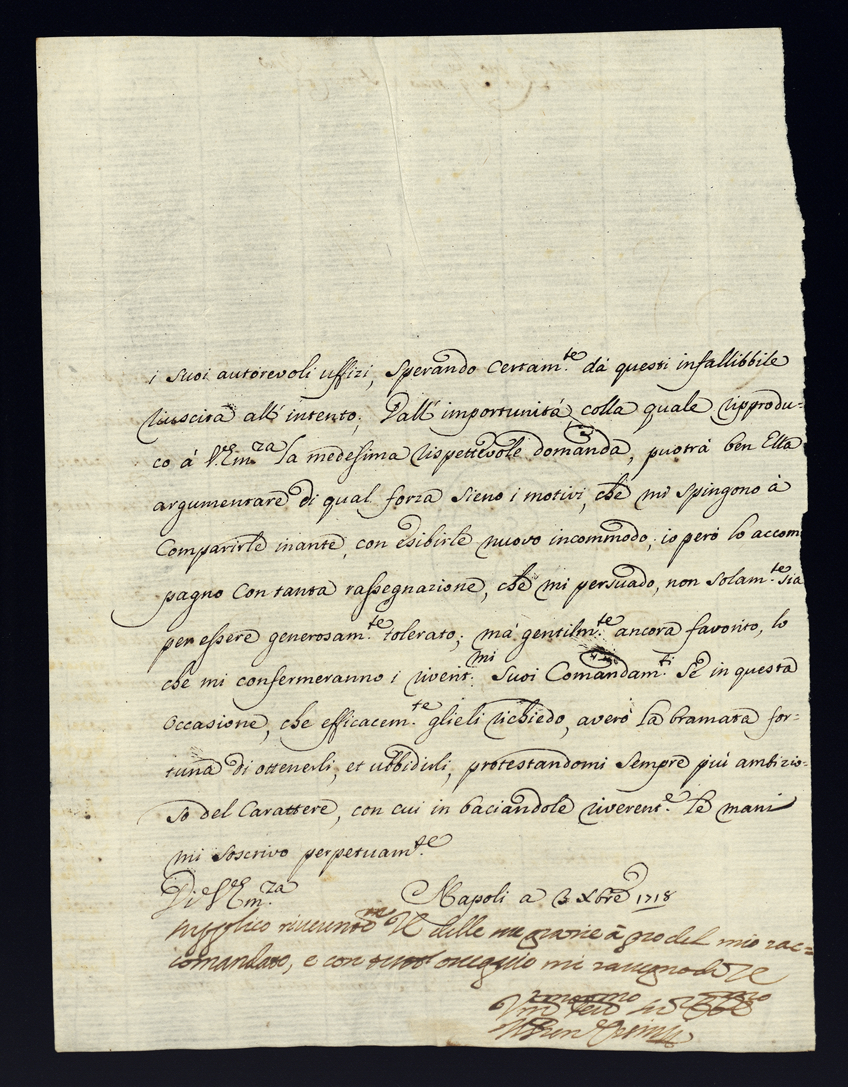 i suoi autorevoli uffizi, sperando certam.te dà questi infallibbile
riuscita all'intento; Dall'importunità colla quale riprodu-
co à V. Em.za la medesima rispettevole domanda, puotrà ben Ella
argumentare di qual forza sieno i motivi, che mi spingono à
Comparirle inante, con esibirle nuovo incommodo; io però lo accom
pagno con tanta rassegnazione, che mi persuado, non solam.te sia
per essere generosam.te tolerato; mà gentilm.te ancora favorito, lo
che mi confermeranno i riverit.mi Suoi Comandam.ti Se in questa
Occasione, che efficacem.te glieli richiedo, averò la bramata for-
tuna di ottenerli, et ubbidirli, protestandomi sempre più ambizio-
so del Carattere, con cui in baciandole riverent.e le mani
mi soscrivo perpetuam.te
Di V. Em.za Napoli a 3 Xbre 1718
supplico VE delle sue grazie à pro del mio rac=
comandato, e con tutto ossequio mi rassegno di VE